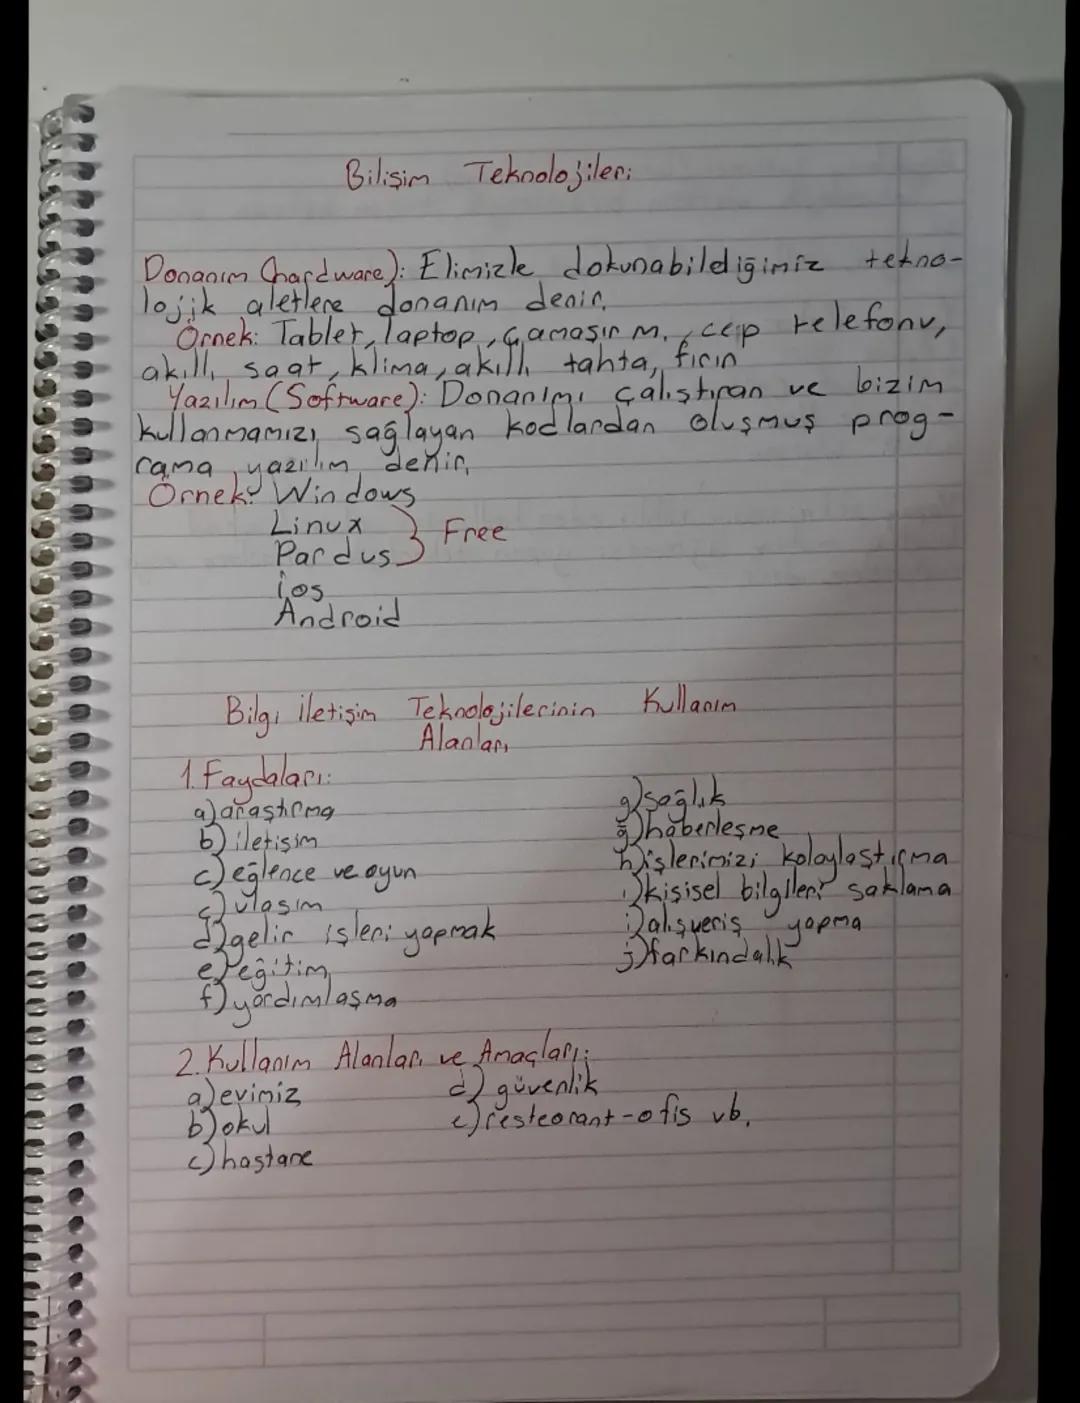 Bilişim Teknolojileri
Donanım (hardware): Elimizle dokunabildiğimiz tekno-
lojik aletlere donanım denir.
Örnek: Tablet, laptop, çamaşır m., cep telefonu,
akıllı saat, klima, akıllı tahta, fırın
Yazılım (Software): Donanımı çalıştıran ve bizim
kullanmamızı sağlayan kodlardan oluşmuş prog-
rama yazılım denir.
Örnek: Windows
Linux
Pardus } Free
ios
Android
Bilgi iletişim Teknolojilerinin Kullanım
Alanları
1. Faydaları:
a) araştırma
b) iletişim
c) eğlence ve oyun
ç) ulaşım
d) gelir işleri yapmak
e) eğitim
f) yardımlaşma
g) sağlık
ğ) haberleşme
h) işlerimizi kolaylaştırma
ı) kişisel bilgileri saklama
i) alışveriş yapma
j) farkındalık
2. Kullanım Alanları ve Amaçları:
a) evimiz
b) okul
c) hastane
d) güvenlik
e) resteorant-ofis vb.